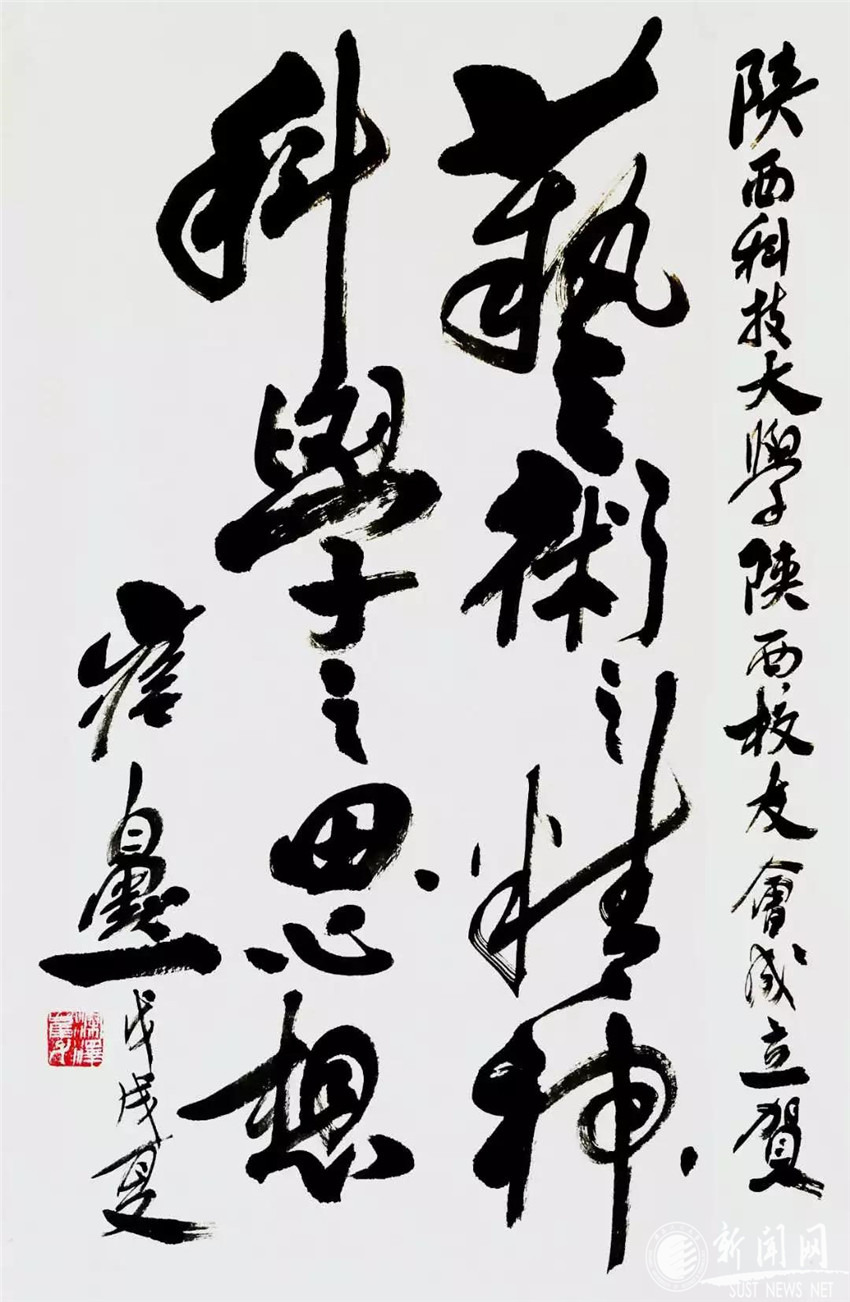 陕西科技大學陕西校友會成立賀
藝術之精神
科學之思想
戊戌夏
新闻网
SUST NEWS NET